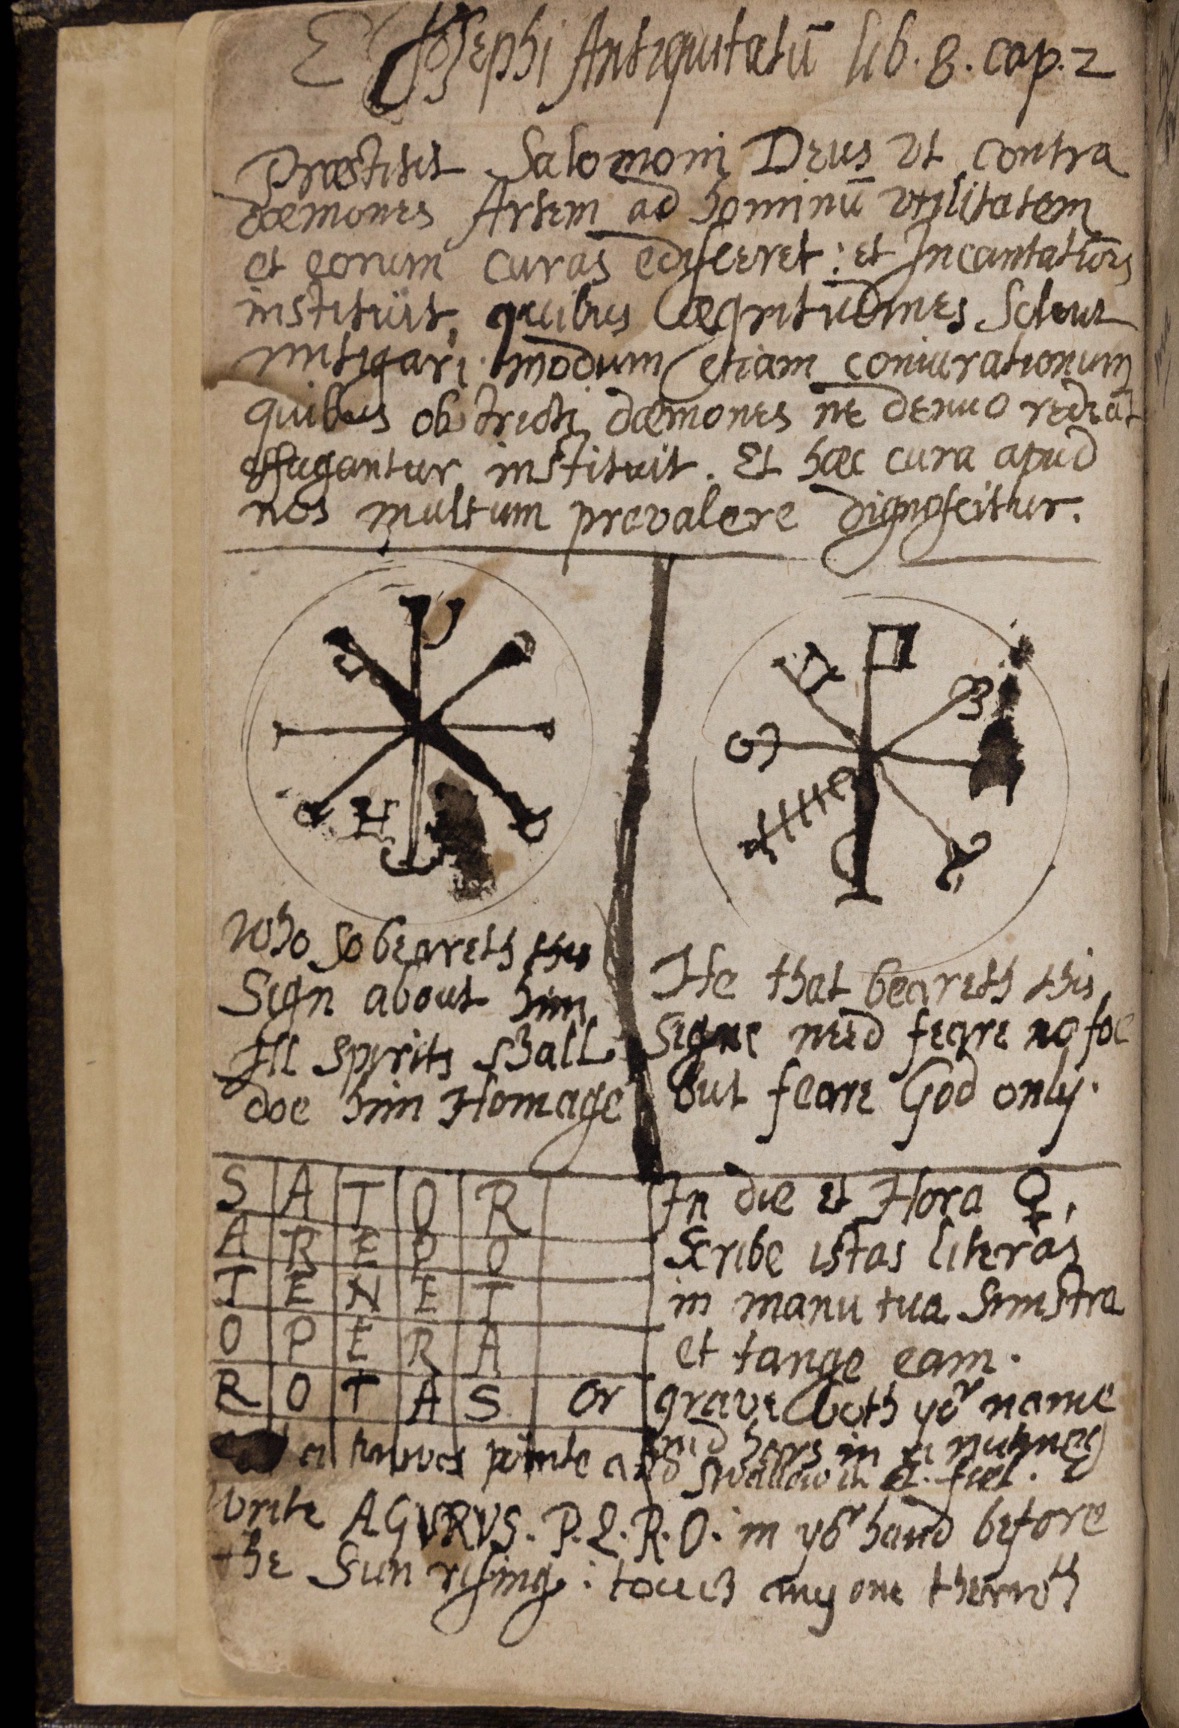 E Josephi Antiquitatū lib. 8. cap. 2
Præstitit Salomoni Deus ut contra
dæmones Artem ad hominū utilitatem
et eorum curas edisceret: et Incantationes
instituit, quibus ægritudines solent
mitigari. modum etiam coniurationum
quibus obstricti dæmones ne denuo redeāt
effugantur instituit. Et hæc cura apud
nos multum prevalere dignoscitur.
Who so beareth this
Sign about him
All spirits shall
doe him Homage
He that beareth this
Signe need feare no foe
but feare God only.
S A T O R
A R E P O
T E N E T
O P E R A
R O T A S or
In die et Hora ♀,
Scribe istas literas
in manu tua Sinistra
et tange eam.
grave both yor name
and hers in a nutmeg
a knives pointe and swallow it et fiet.
Write AGVRVS. P. L. R. O. in yor hand before
the Sun rising: touch any one therwth